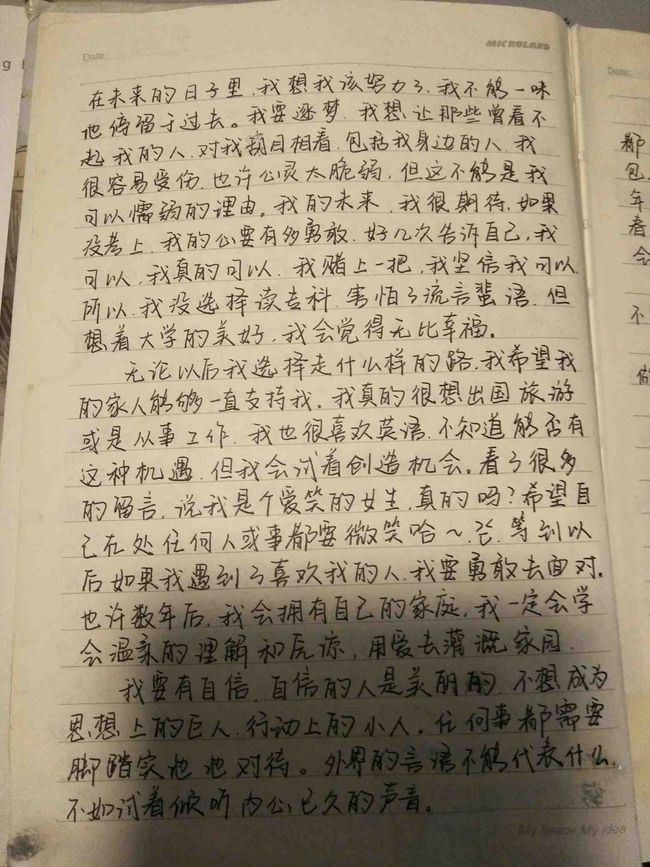 Date:
MICROLAND
在未来的日子里,我想我该努力了,我不能一味
地停留于过去。我要逐梦,我想让那些曾看不
起我的人,对我刮目相看,包括我身边的人,我
很容易受伤,也许心灵太脆弱,但这不能是我
可以懦弱的理由。我的未来,我很期待,如果
没考上,我的心要有多勇敢,好几次告诉自己,我
可以,我真的可以,我赌上一把,我坚信我可以,
所以,我没选择读专科,害怕了流言蜚语,但
想着大学的美好,我会觉得无比幸福。
无论以后我选择走什么样的路,我希望我
的家人能够一直支持我。我真的很想出国旅游
或是从事工作,我也很喜欢英语,不知道能否有
这种机遇,但我会试着创造机会。看了很多
的留言,说我是个爱笑的女生,真的吗?希望自
己在处任何人或事都要微笑哈~,等到以
后如果我遇到了喜欢我的人,我要勇敢去面对。
也许数年后,我会拥有自己的家庭,我一定会学
会温柔的理解和原谅,用爱去灌溉家园.
我要有自信,自信的人是美丽的,不想成为
思想上的巨人,行动上的小人。任何事都需要
脚踏实地地对待。外界的言语不能代表什么,
不如试着倾听内心已久的声音。
My space,My idea
Date:
都
包
年
看
会
不